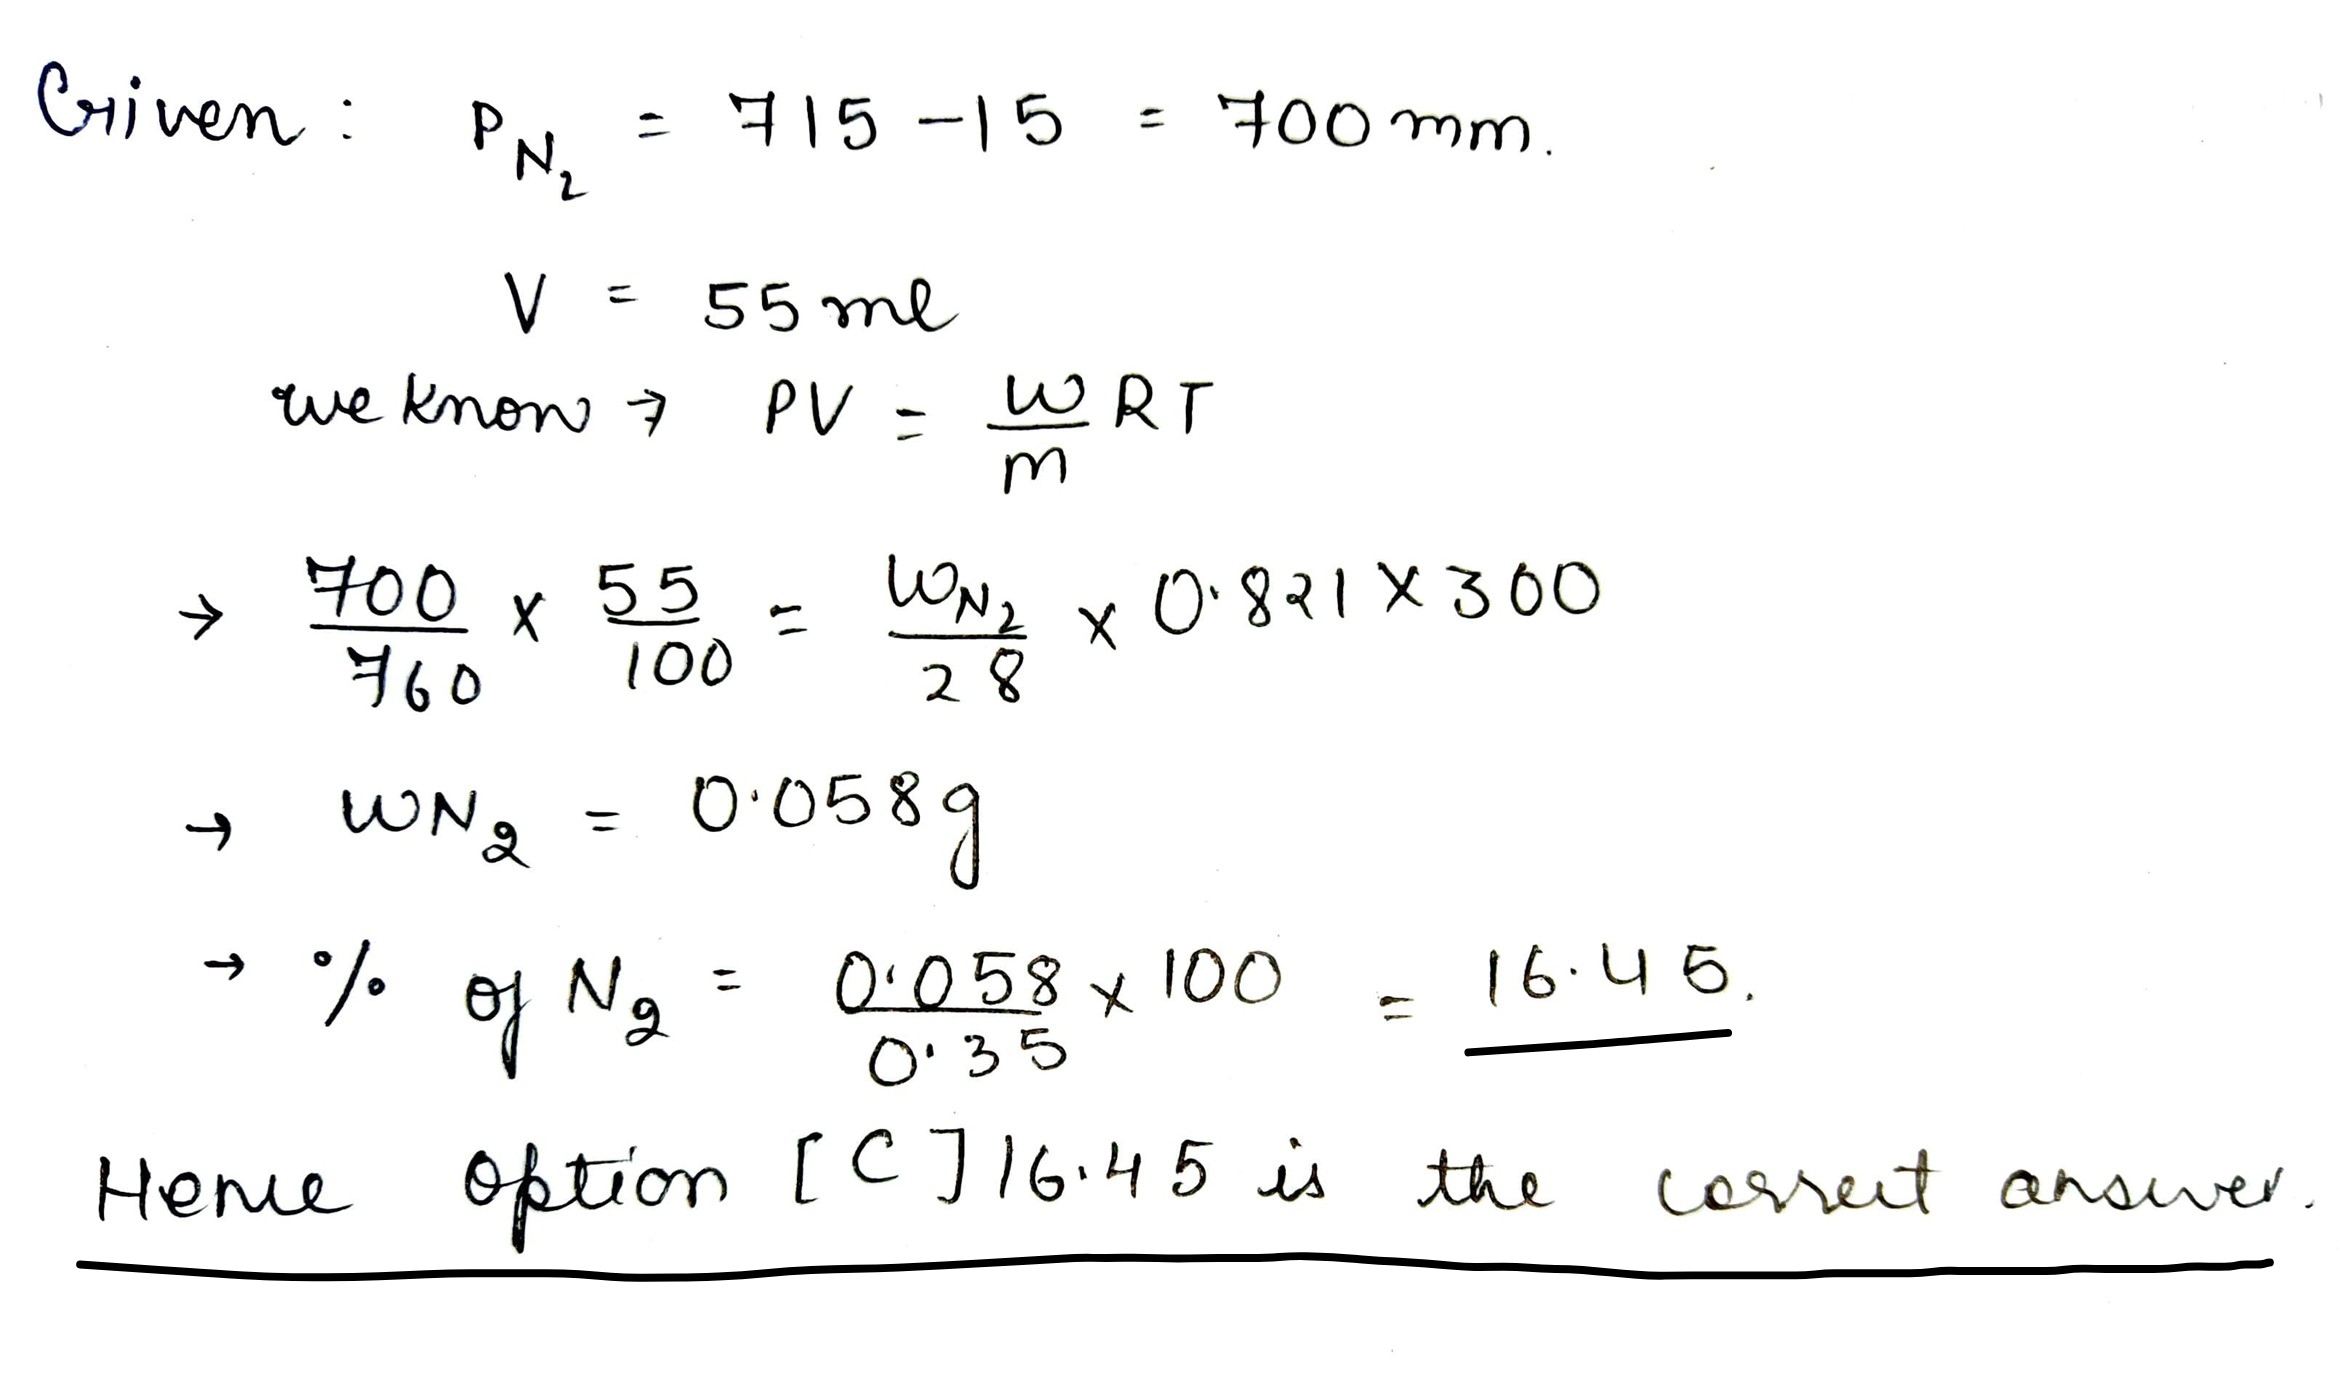 Given : P_N₂ = 715 - 15 = 700 mm.
V = 55 ml
we know → PV = w/m RT
→ 700/760 × 55/100 = W_N₂/28 × 0.821 × 300
→ WN₂ = 0.058g
→ % of N₂ = 0.058/0.35 × 100 = 16.45.
Hence option [C] 16.45 is the correct answer.